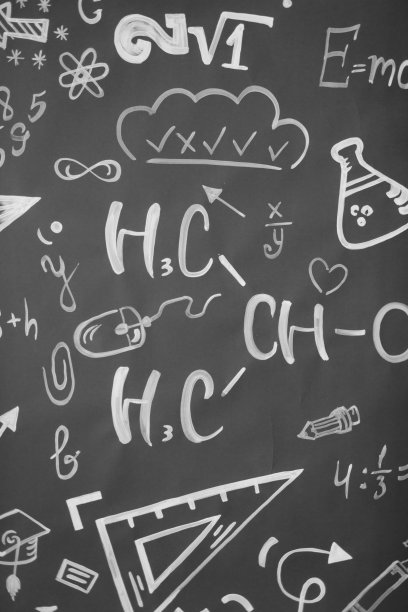 √1
E=mc
8 5
x
y
H₃C
y
CH-O
+h
H₃C
b
4:1/3=